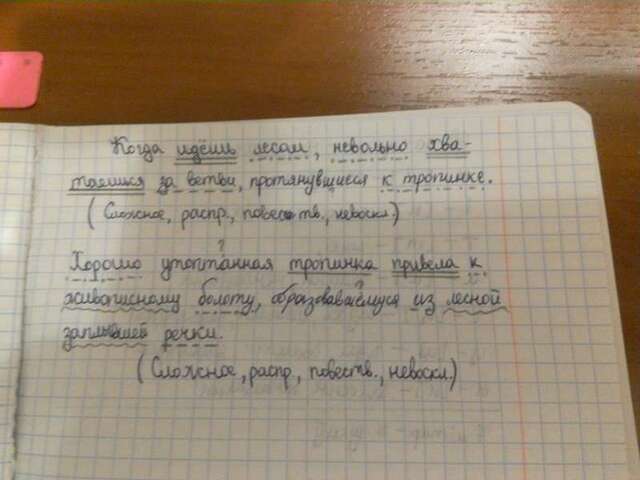 Когда идёшь лесом, невольно хва-
таешься за ветви, протянувшиеся к тропинке.
(Сложное, распр., повеств., невоскл.)
?
Хорошо утоптанная тропинка привела к
?
живописному болоту, образовавшемуся из лесной
заплывшей речки.
(Сложное, распр., повеств., невоскл.)